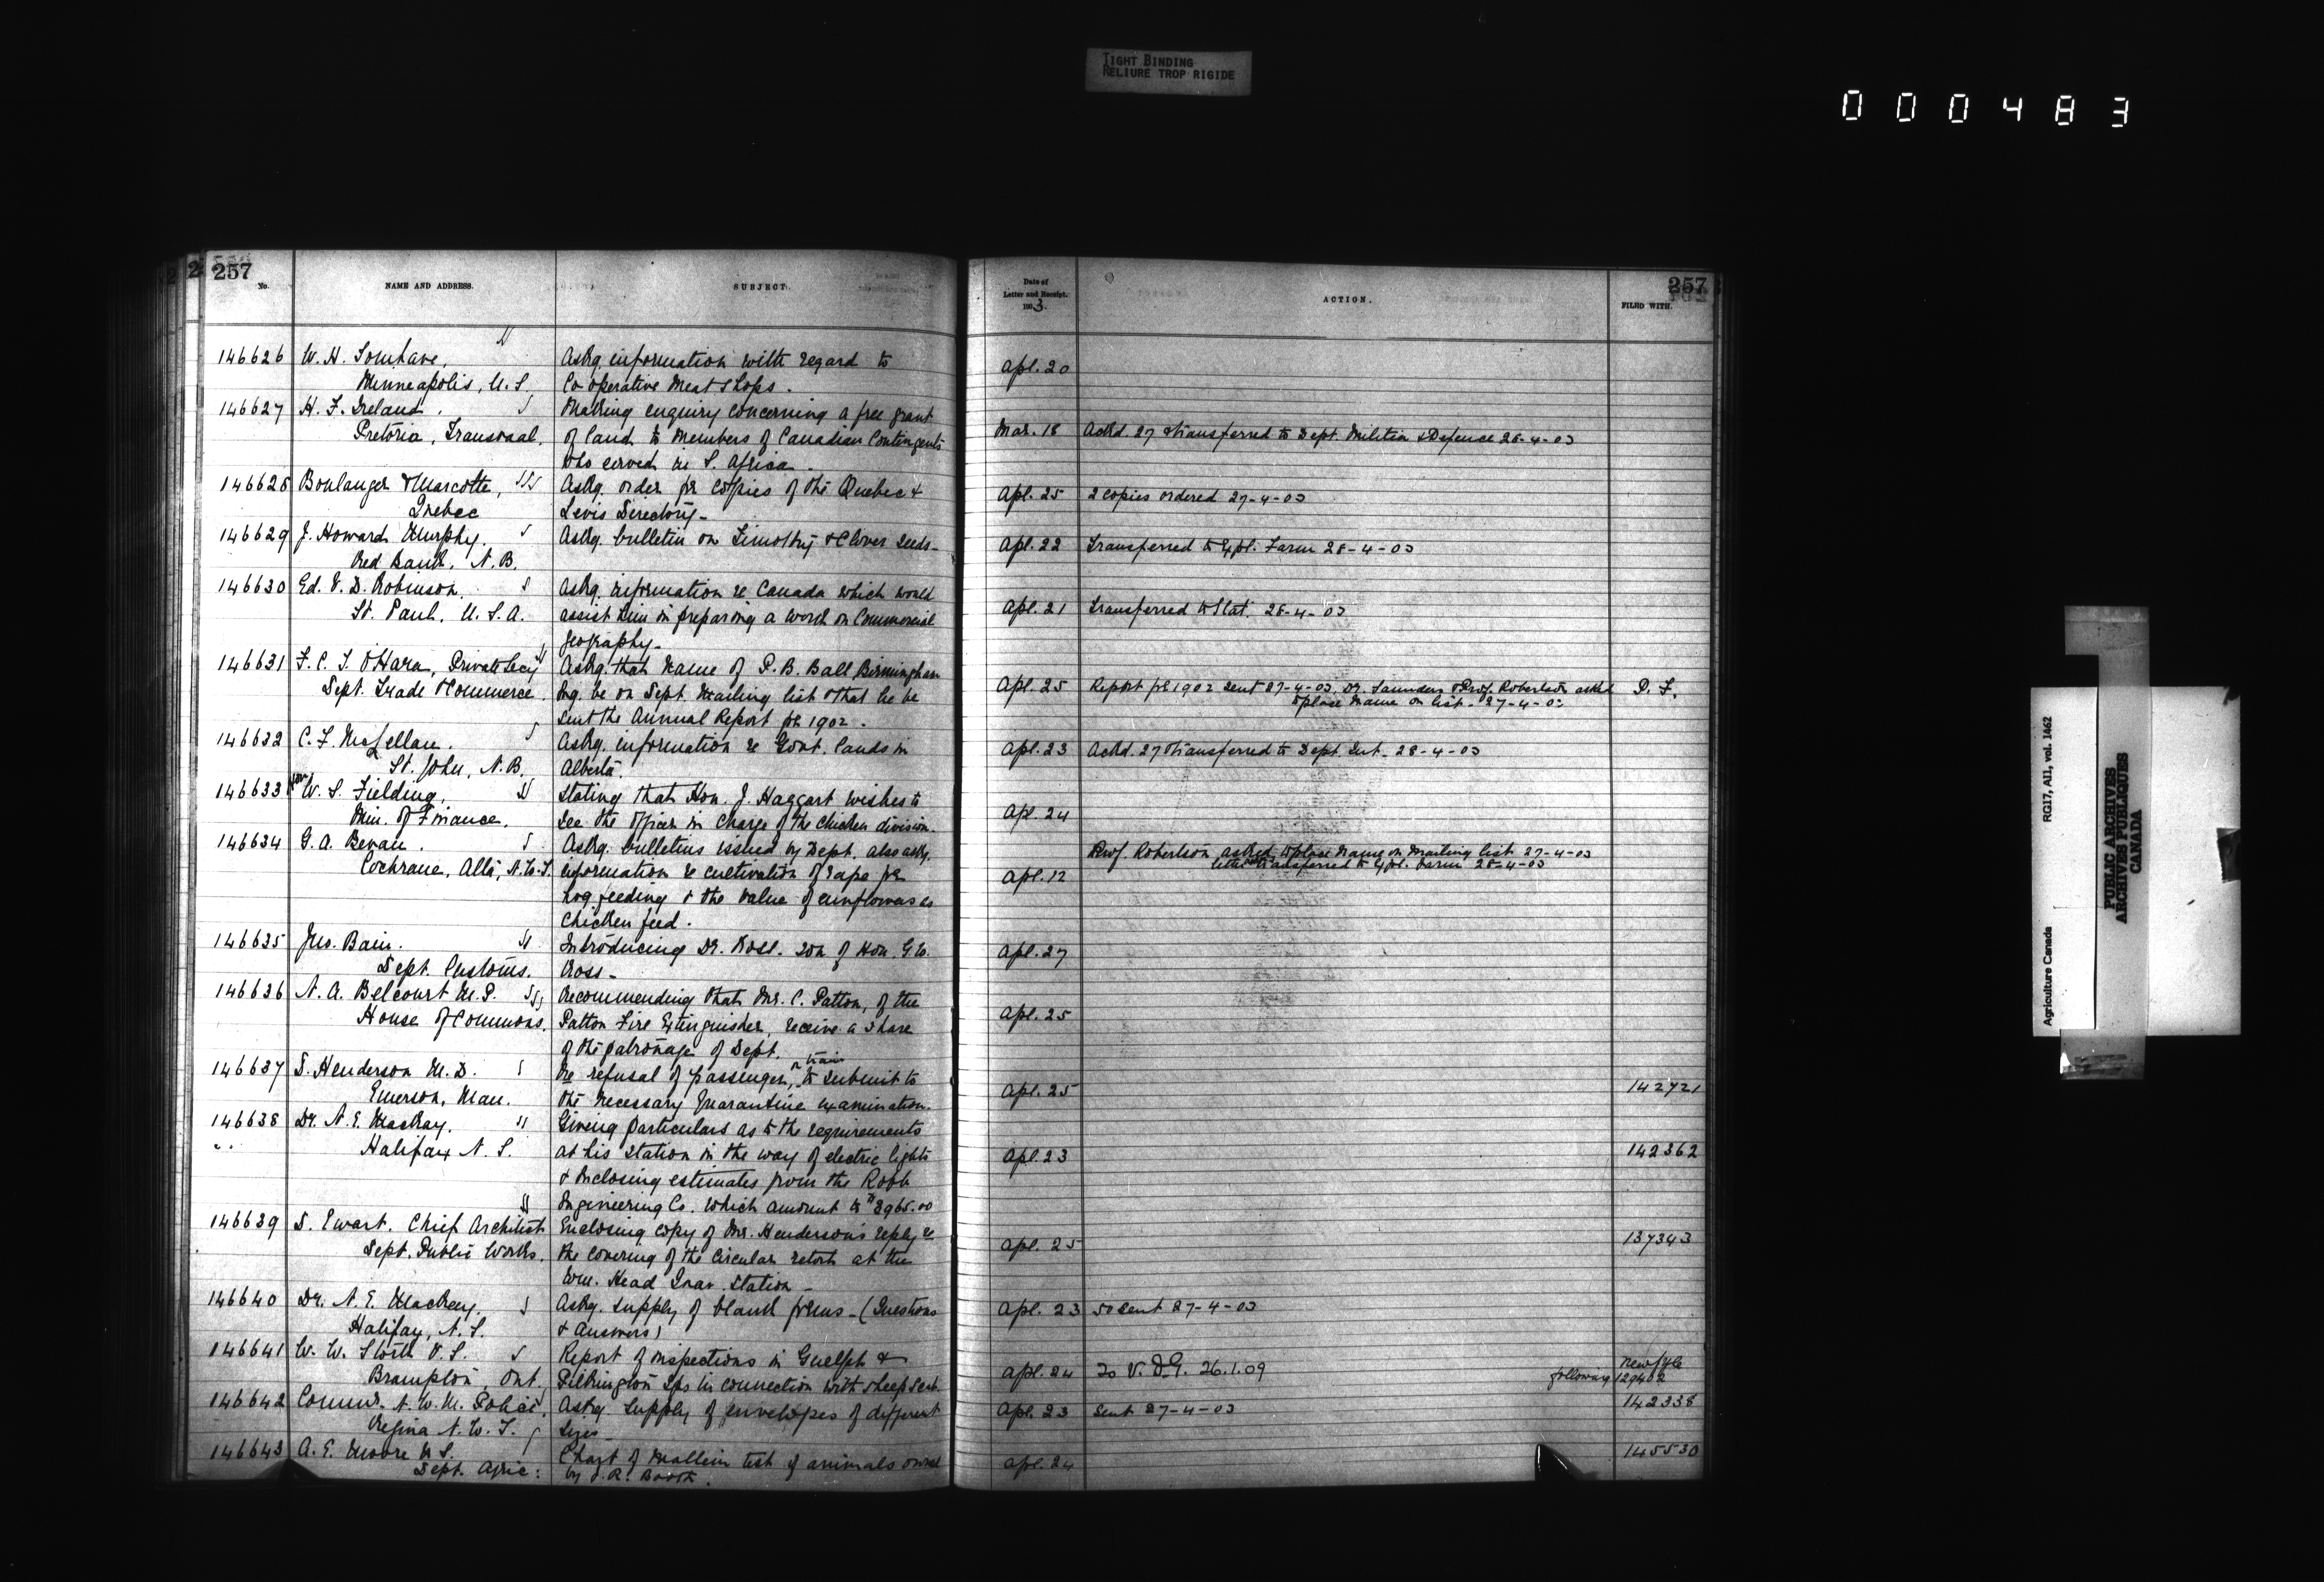 TIGHT BINDING
RELIURE TROP RIGIDE
000483
257
No.
NAME AND ADDRESS.
SUBJECT.
146626 W. H.
Minneapolis, U.S.
Askg. information with regard to
Co operative Meat Shops.
146627 H. F. Ireland.
Pretoria, Transvaal.
Making enquiry concerning a free grant
of land to members of Canadian Contingents
who served in S. Africa.
146628 Boulanger & Marcotte,
Quebec
Askg. order for copies of the Quebec &
Levis Directory-
146629 J. Howard Murphy.
Red Bank, N.B.
Askg. bulletin on Timothy & Clover Seeds-
146630 Ed. V. D. Robinson.
St. Paul, U.S.A.
Askg. information re Canada which would
assist him in preparing a work on Commercial
Geography-
146631 F. C. T. O'Hara, Private Secy
Dept. Trade & Commerce.
Askg. that name of P. B. Ball Birmingham
Eng. be on Dept. Mailing list & that he be
sent the Annual Report for 1902.
146632 C. F. McLellan.
St. John, N.B.
Askg. information re Govt. lands in
Alberta.
146633 Hon W. S. Fielding,
Min. of Finance.
Stating that Hon. J. Haggart wishes to
see the officer in charge of the chicken division.
146634 G. A. Bevan.
Cochrane, Alta, N.W.T.
Askg. bulletins issued by Dept. also askg.
information re cultivation of rape for
hog feeding & the value of sunflowers as
chicken feed.
146635 Jno. Bain.
Dept. Customs.
Introducing Dr. Ross. son of Hon. G. W.
Ross-
146636 N. A. Belcourt M.P.
House of Commons.
Recommending that Mr. C. Patton, of the
Patton Fire Extinguisher, receive a share
of the patronage of Dept.
146637 D. Henderson M.D.
Emerson, Man.
Re refusal of passenger, on train to submit to
the necessary Quarantine examination.
146638 Dr. N. E. MacKay.
Halifax N.S.
Giving particulars as to the requirements
at his station in the way of electric lights
& inclosing estimates from the Robb
Engineering Co. which amount to $2965.00
146639 D. Ewart. Chief Architect
Dept. Public Works.
Enclosing copy of Mr. Henderson's reply re
the covering of the circular retort at the
Wm. Head Quar. Station-
146640 Dr. N. E. Mackay.
Halifax, N.S.
Askg. supply of blank forms-(Questions
& Answers)
146641 W. W. Stork V.S.
Brampton, Ont.
Report of inspections in Guelph &
Pilkington Tps in connection with sheep scab.
146642 Commr. N. W. M. Police,
Regina N.W.T.
Askg. supply of envelopes of different
sizes-
146643 A. E. Moore V.S.
Dept. Agric:
Chart of Mallein test of animals owned
by J. R. Booth.
257
Date of
Letter and Receipt.
1903.
ACTION.
FILED WITH.
Apl. 20
Mar. 18 Ackd. 27 & transferred to Dept. Militia & Defence 28-4-03
Apl. 25 2 copies ordered 27-4-03
Apl. 22 Transferred to Expl. Farm 28-4-03
Apl. 21 Transferred to Stat. 28-4-03
Apl. 25 Report for 1902 sent 27-4-03. Dr. Saunders & Prof. Robertson asked P. F.
to place name on list-27-4-03
Apl. 23 Ackd. 27 & transferred to Dept. Int. 28-4-03
Apl. 24
Prof. Robertson asked to place name on mailing list 27-4-03
letter transferred to Expl. Farm 28-4-03
Apl. 12
Apl. 27
Apl. 25
Apl. 25 142721
Apl. 23 142362
Apl. 25 137343
Apl. 23 50 sent 27-4-03
Apl. 24 To V. D. G. 26.1.09 following New file 129402
Apl. 23 Sent 27-4-03 142338
Apl. 24 145530
Agriculture Canada RG17, AII, vol. 1462
PUBLIC ARCHIVES
ARCHIVES PUBLIQUES
CANADA